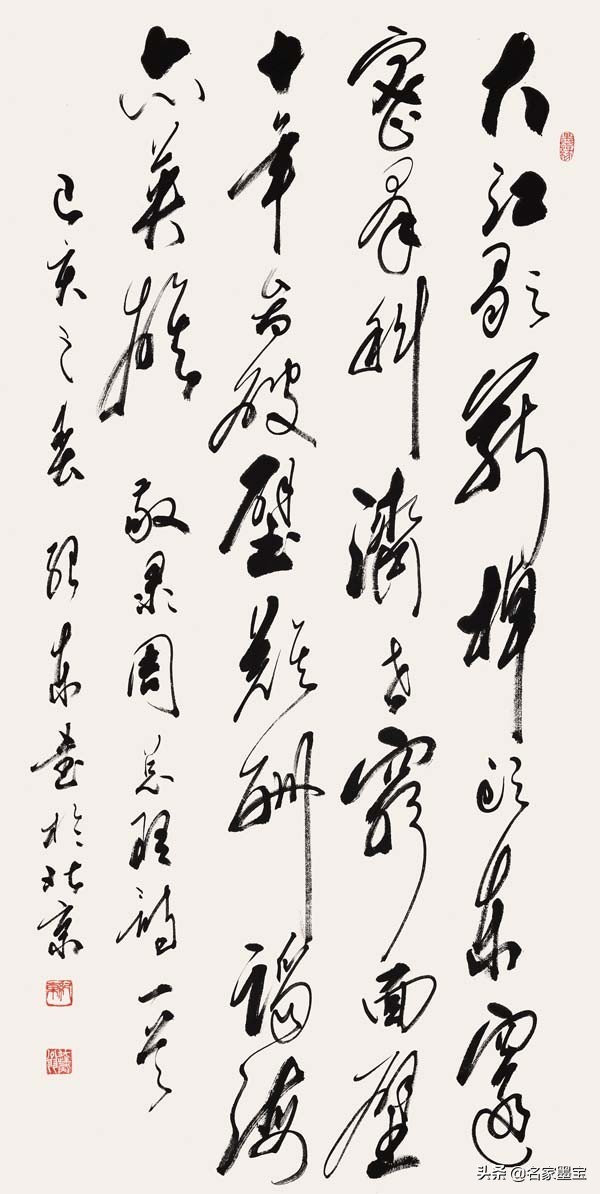 大江歌罷掉頭東邃
密群科濟世窮面壁
十年啚破壁難酬蹈海
亦英雄 敬录周总理詩一首
己亥之春 東書於北京
头条 @名家墨宝